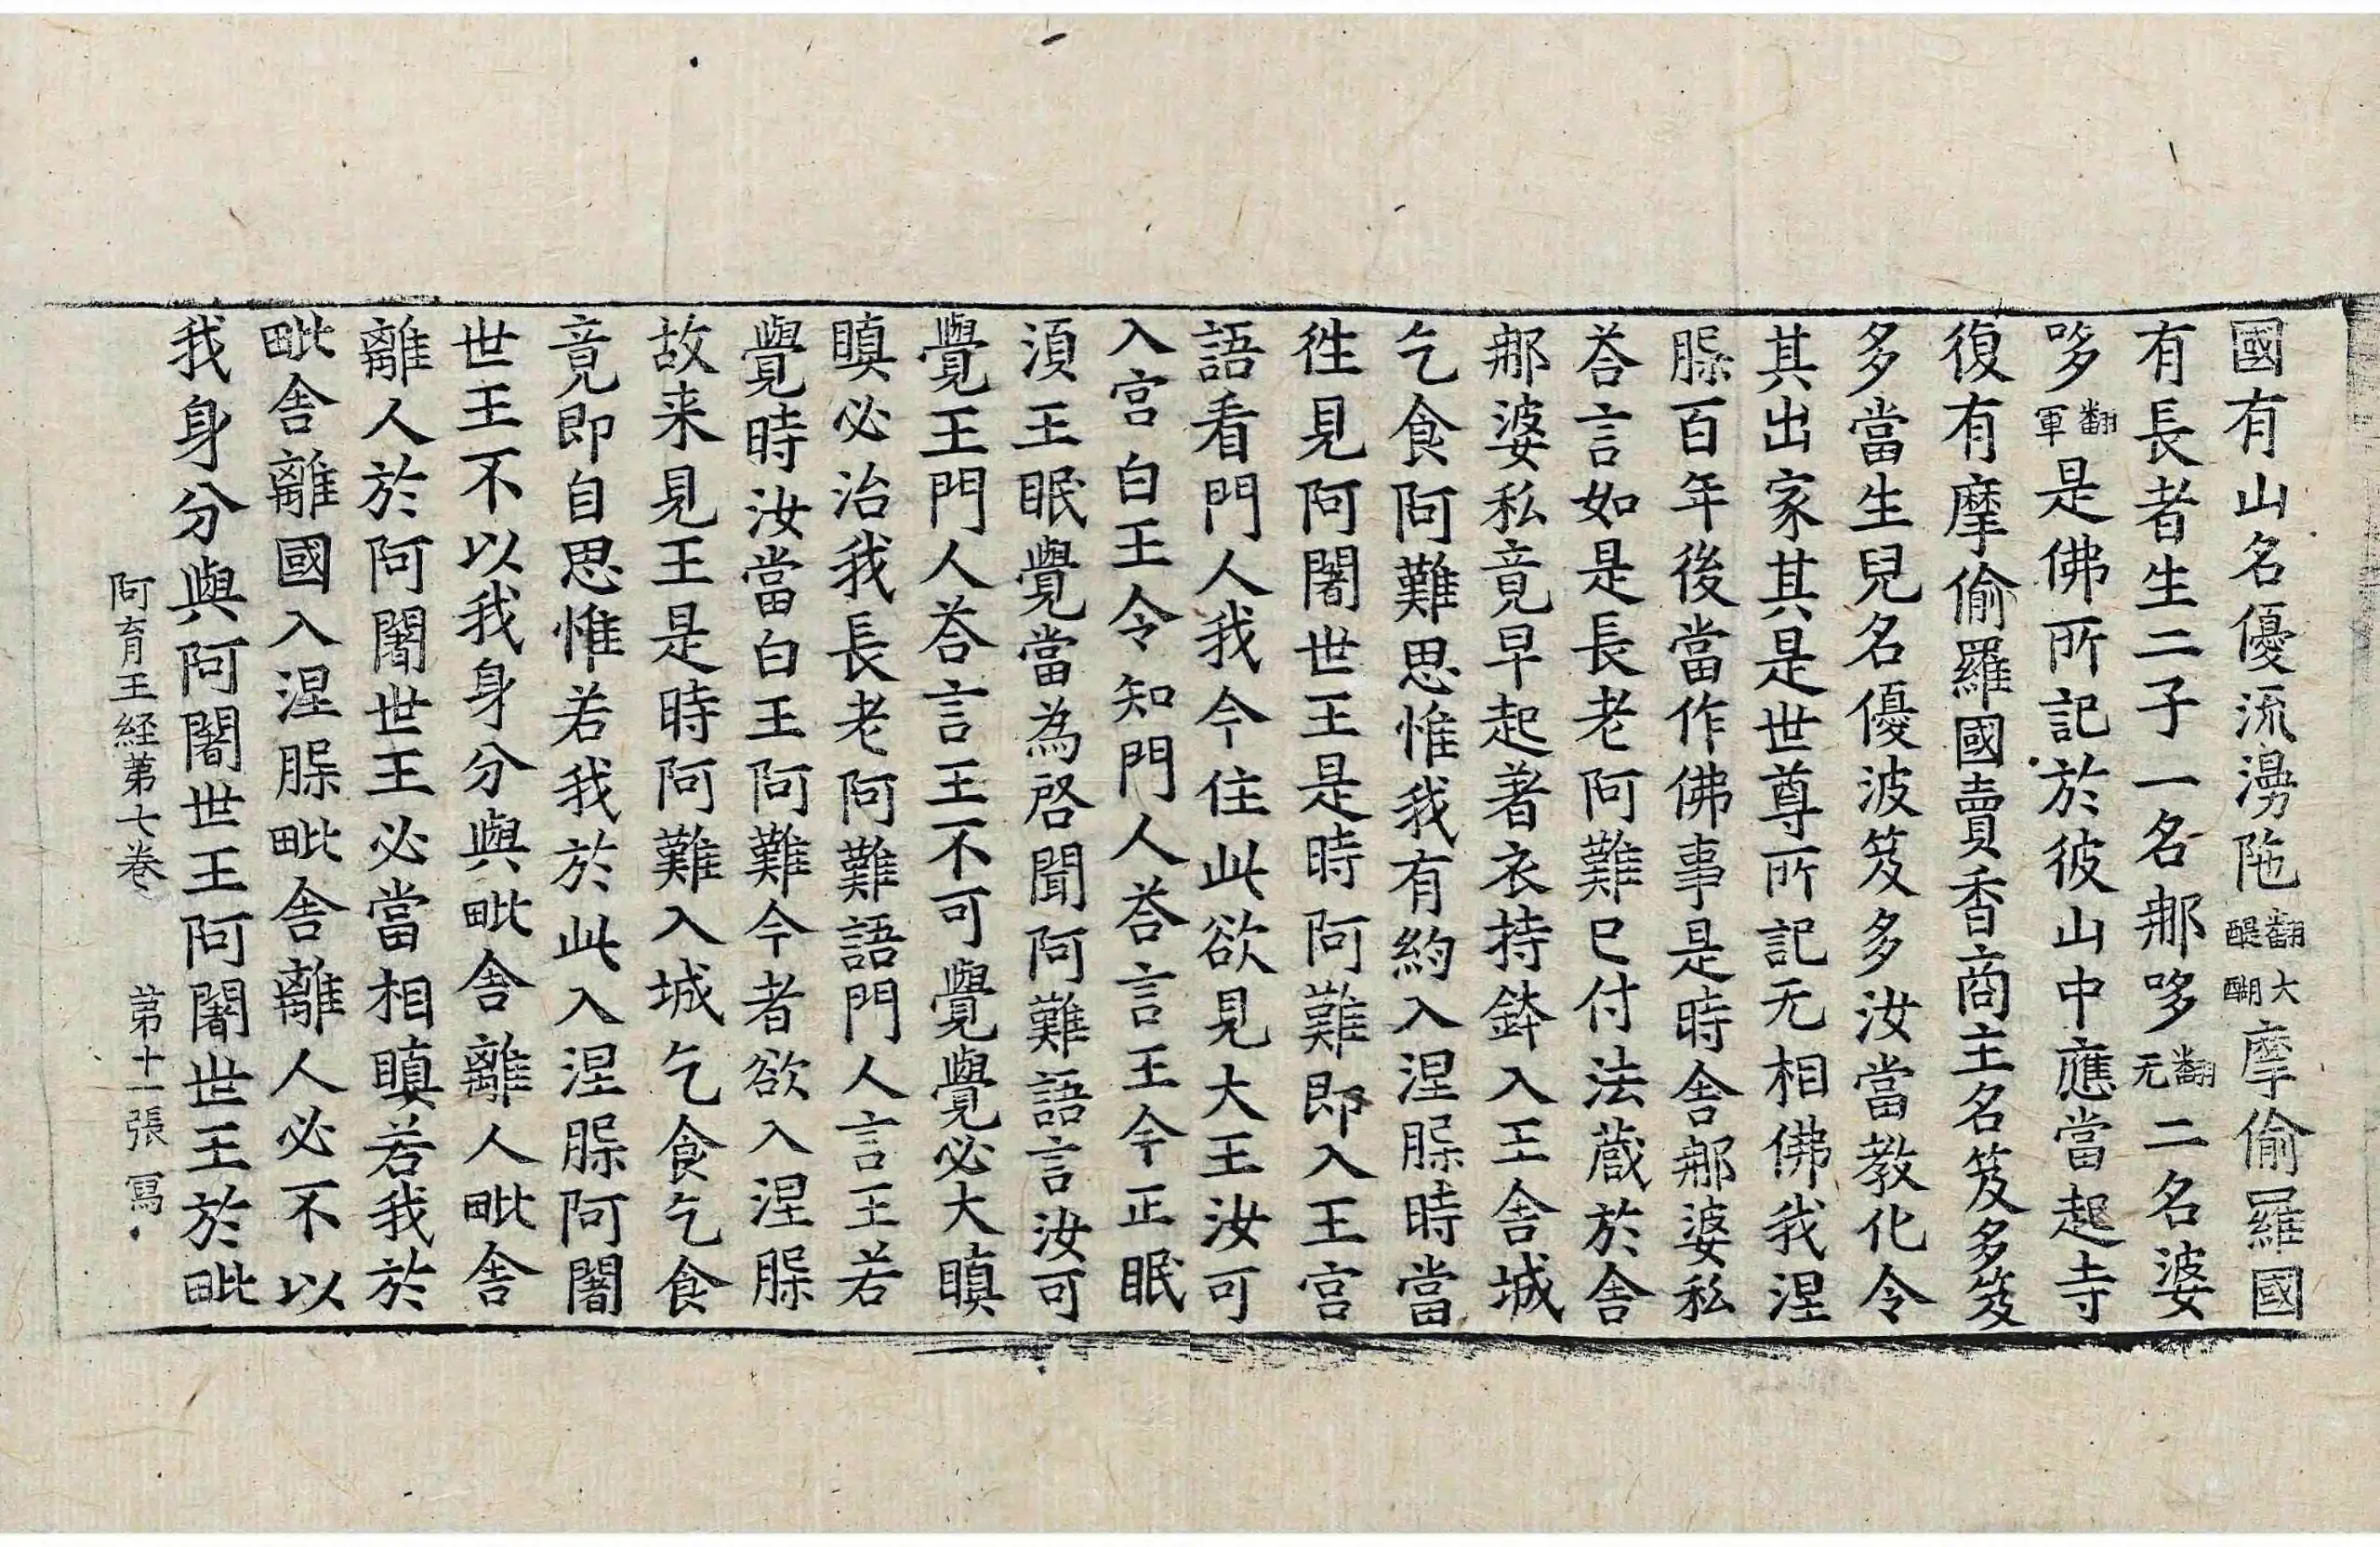 國有山名優流漫陁翻大醍醐摩偷羅國
有長者生二子一名那哆翻无二名婆
哆翻軍是佛所記於彼山中應當起寺
復有摩偷羅國賣香商主名笈多笈
多當生兒名優波笈多汝當教化令
其出家其是世尊所記无相佛我涅
脲百年後當作佛事是時舍那婆私
荅言如是長老阿難已付法蔵於舍
那婆私竟早起著衣持鉢入王舍城
乞食阿難思惟我有約入涅脲時當
徃見阿闍世王是時阿難即入王宫
語看門人我今住此欲見大王汝可
入宫白王令知門人荅言王今正眠
湏王眠覺當為啓聞阿難語言汝可
覺王門人荅言王不可覺覺必大瞋
瞋必治我長老阿難語門人言王若
覺時汝當白王阿難今者欲入涅脲
故来見王是時阿難入城乞食乞食
竟即自思惟若我於此入涅脲阿闍
世王不以我身分與毗舍離人毗舍
離人於阿闍世王必當相瞋若我於
毗舍離國入涅脲毗舍離人必不以
我身分與阿闍世王阿闍世王於毗
阿育王経第七卷 第十一張 寫